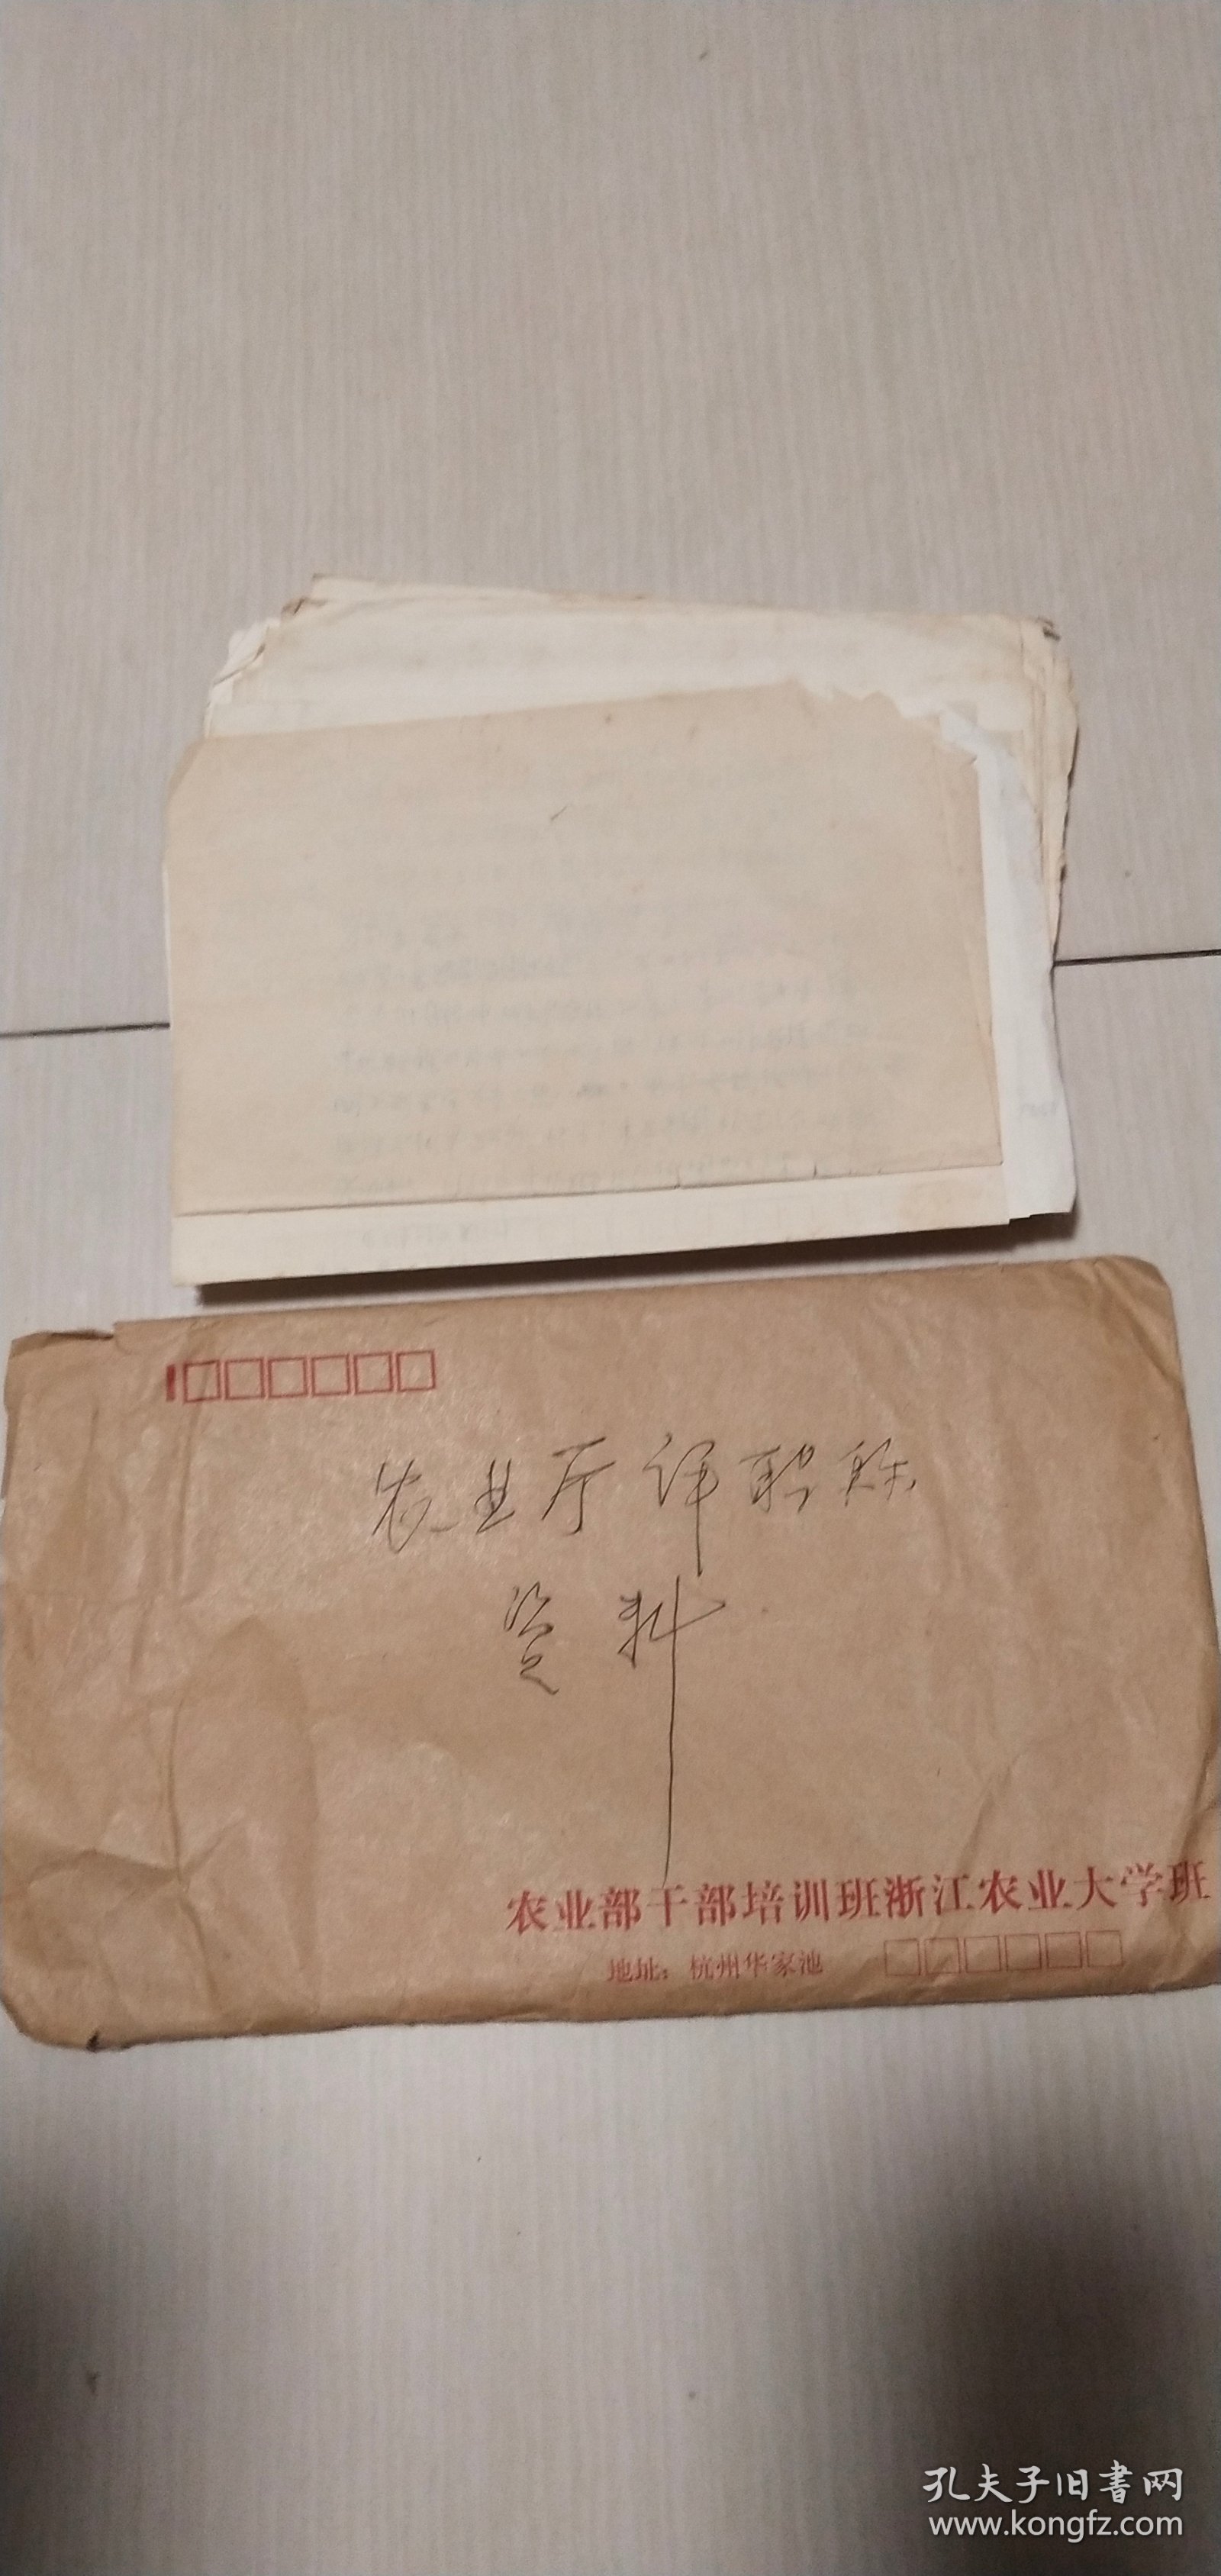 农业厅评职称
资料
农业部干部培训班浙江农业大学班
地址：杭州华家池
孔夫子旧书网
www.kongfz.com